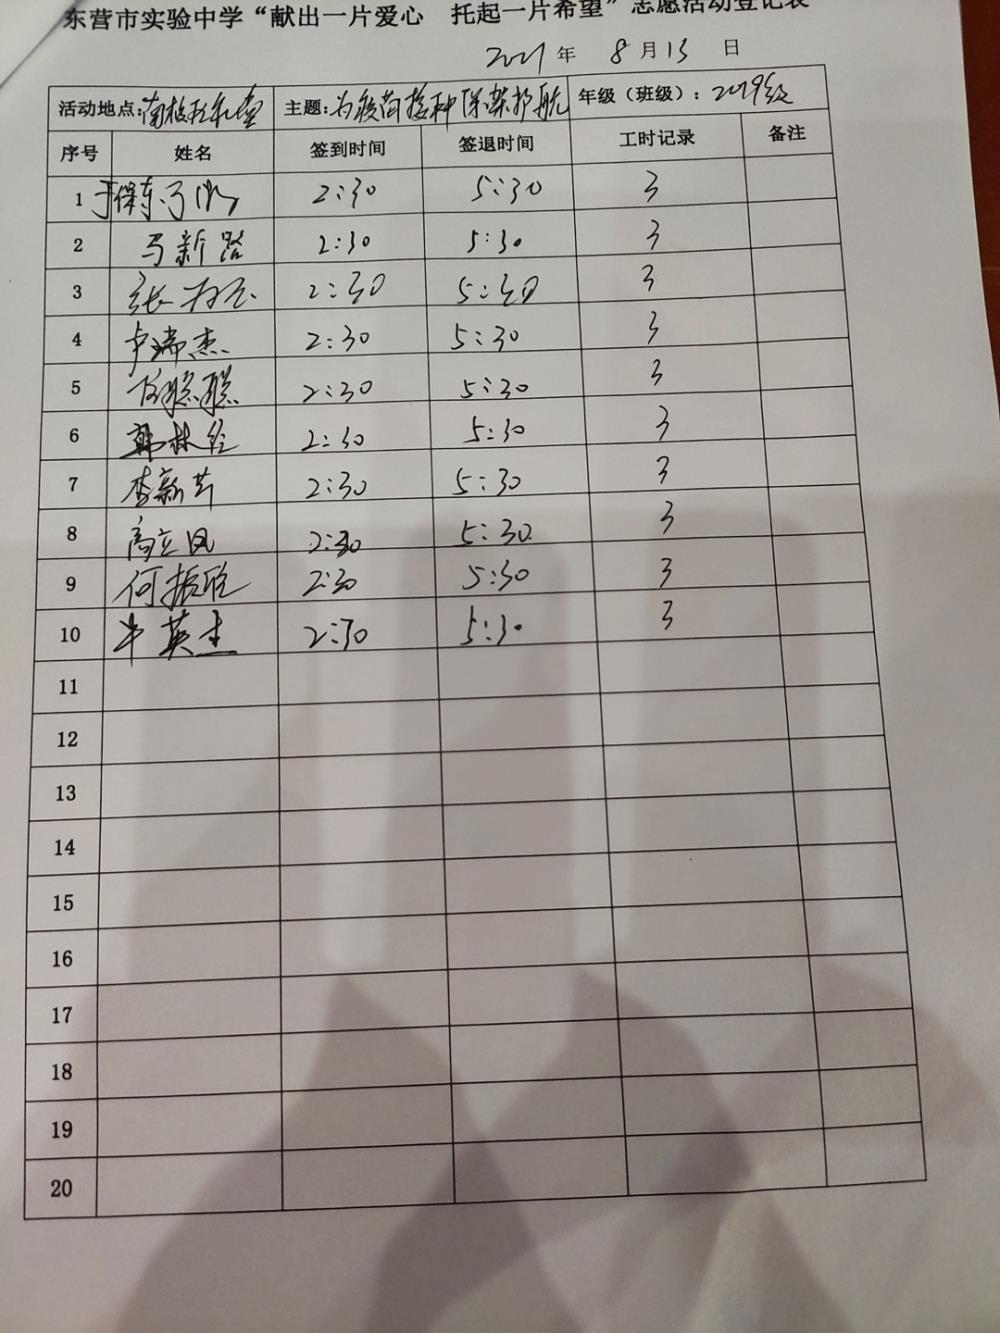 东营市实验中学“献出一片爱心 托起一片希望”志愿活动登记表
2021年 8月13日
活动地点: 主题:为疫苗接种保驾护航 年级（班级）：2019级
序号 姓名 签到时间 签退时间 工时记录 备注
1 2:30 5:30 3
2 马新路 2:30 5:30 3
3 张 2:30 5:30 3
4 卢瑞杰 2:30 5:30 3
5 聪聪 2:30 5:30 3
6 韩林 2:30 5:30 3
7 李新 2:30 5:30 3
8 高立风 2:30 5:30 3
9 何振欣 2:30 5:30 3
10 牛英杰 2:30 5:30 3
11
12
13
14
15
16
17
18
19
20